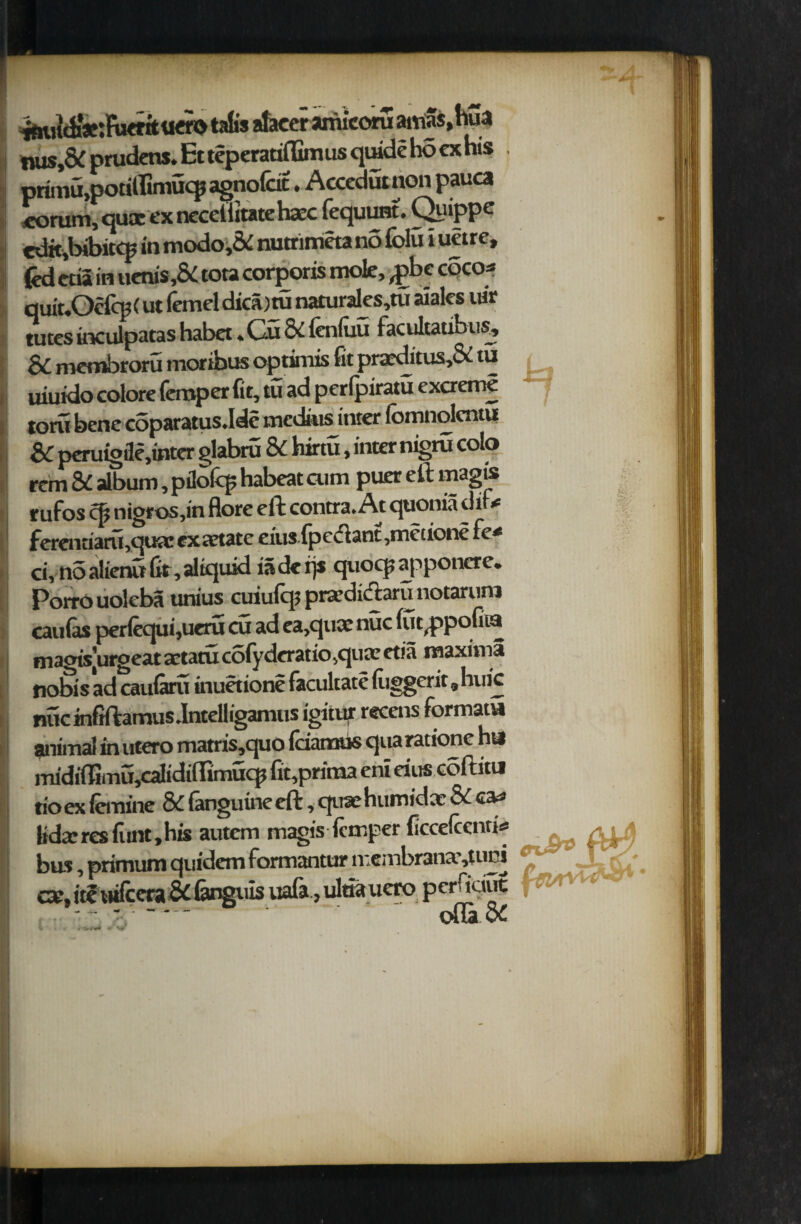 inuidiæ:Fuerit uero talis alacer amicorũ amãs,hũa
nus,& prudens. Et tẽperatissimus quidẽ hõ ex his
primũ,potissimũq; agnoscit. Accedũt non pauca
eorum, quæ ex necessitate hæc sequunt̃. Quippe
edit,bibitq; in modo,& nutrimẽta nõ solũ ĩ uẽtre,
sed etiã in uenis,& tota corporis mole, ꝓbe cõco-
quit.Oẽsq;(ut semel dicã)tũ naturales,tũ aĩales uir
tutes inculpatas habet. Cũ & sensuũ facultatibus,
& membrorũ moribus optimis sit præditus,& tũ
uiuido colore semper sit, tũ ad perspiratũ excremẽ
torũ bene cõparatus.Idẽ medius inter somnolentũ
& peruigilẽ,inter glabrũ & hirtũ, inter nigrũ colo
rem & album, pilosq; habeat cum puer est magis
rufos q̃ nigros,in flore est contra. At quoniã dif-
ferentiarũ,quæ ex ætate eius spectant̃,mẽtionẽ fe-
ci, nõ alienũ sit, aliquid iã de ijs quoq; apponere.
Porro uolebã unius cuiusq; prædictarũ notarum
causas persequi,uerũ cũ ad ea,quæ nũc sũt ꝓposita
magis urgeat ætatũ cõsyderatio,quæ etiã maximã
nobis ad causarũ inuẽtionẽ facultatẽ suggerit, huic
nũc insistamus.Intelligamus igitur recens formatũ
animal in utero matris,quo sciamus qua ratione hu
midissimũ,calidissimũq; sit,prima enĩ eius cõstitu
tio ex semine & sanguine est, quæ humidæ & ca-
lidæ res sunt, his autem magis semper siccescenti-
bus, primum quidem formantur membranæ,tuni
cæ, itẽ uiscera & sanguis uasa, ultra uero perficiũt
ossa &